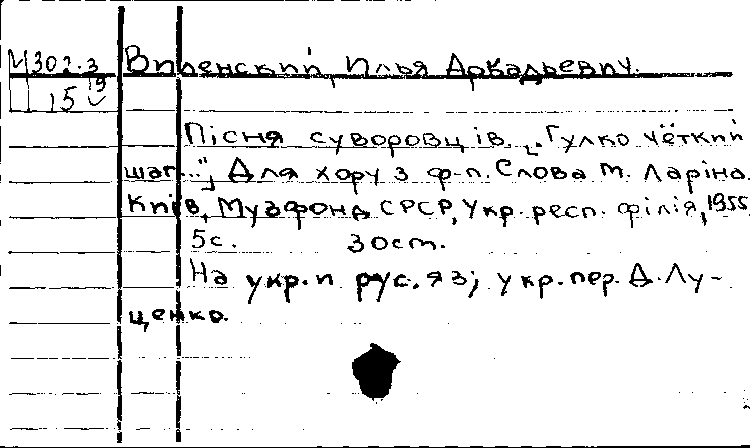 И302.3 Виленский, Илья Аркадьевич.
15 19
Пісня суворовців „Гулко чёткий
шаг...", Для хору з ф-п. Слова М. Ларіна.
Київ, Музфонд СРСР, Укр. респ. філія, 1955
5с. 30ст.
На укр. и рус. яз; укр. пер. Д. Лу-
ценко.